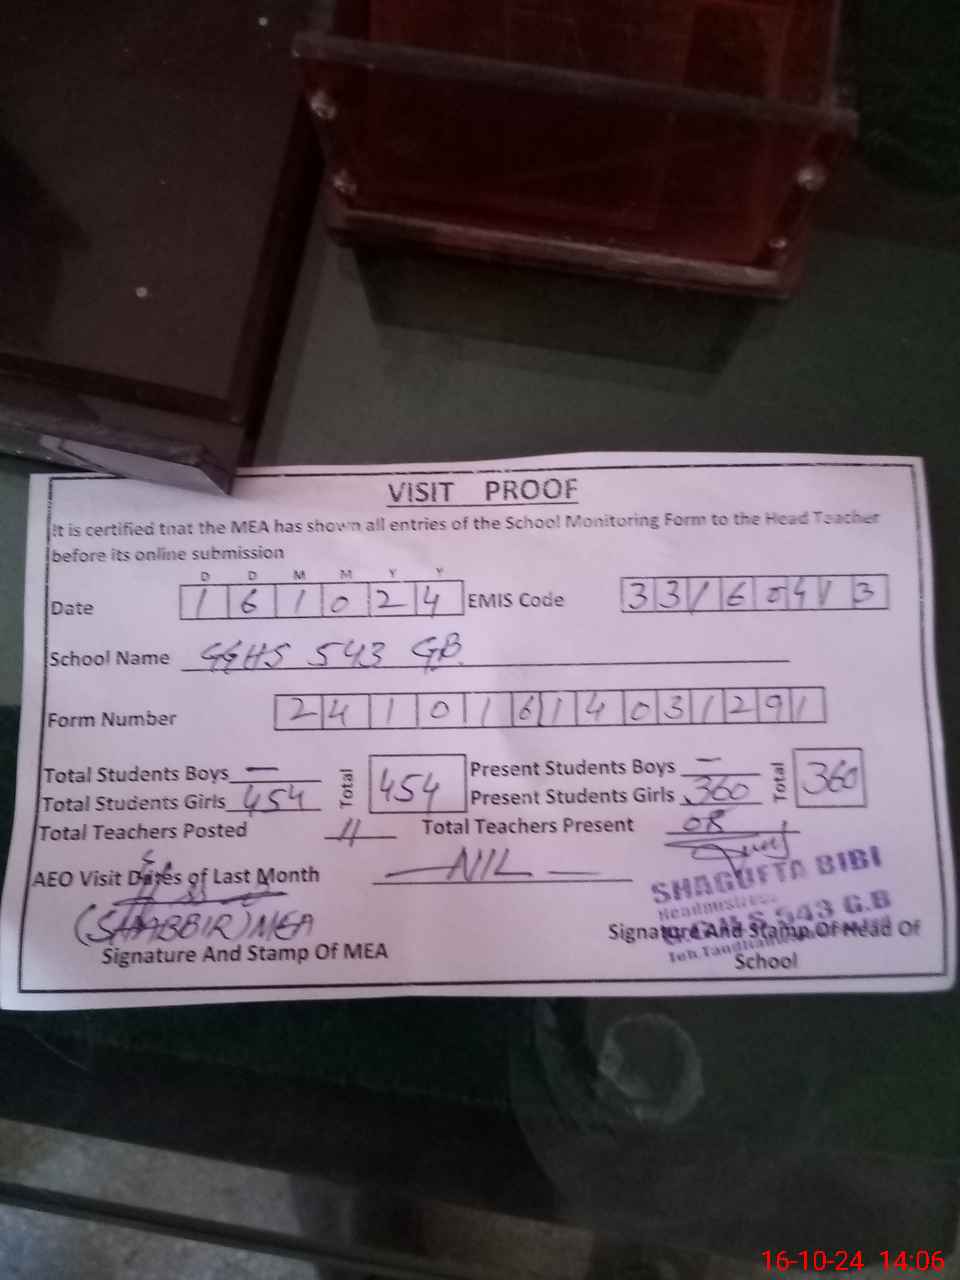 VISIT PROOF
It is certified that the MEA has shown all entries of the School Monitoring Form to the Head Teacher
before its online submission
D D M M Y Y
Date 1 6 1 0 2 4 EMIS Code 3 3 1 6 0 4 1 3
School Name GGHS 543 GB
Form Number 2 4 1 0 1 6 1 4 0 3 1 2 9 1
Total Students Boys — Total 454 Present Students Boys — Total 360
Total Students Girls 454 Present Students Girls 360
Total Teachers Posted 11 Total Teachers Present 08
AEO Visit Dates of Last Month — NIL —
SHAGUFTA BIBI
Headmistress
G.G.H.S 543 G.B
(SHABBIR) MEA
Signature And Stamp Of MEA
Signature And Stamp Of Head Of
School
16-10-24 14:06